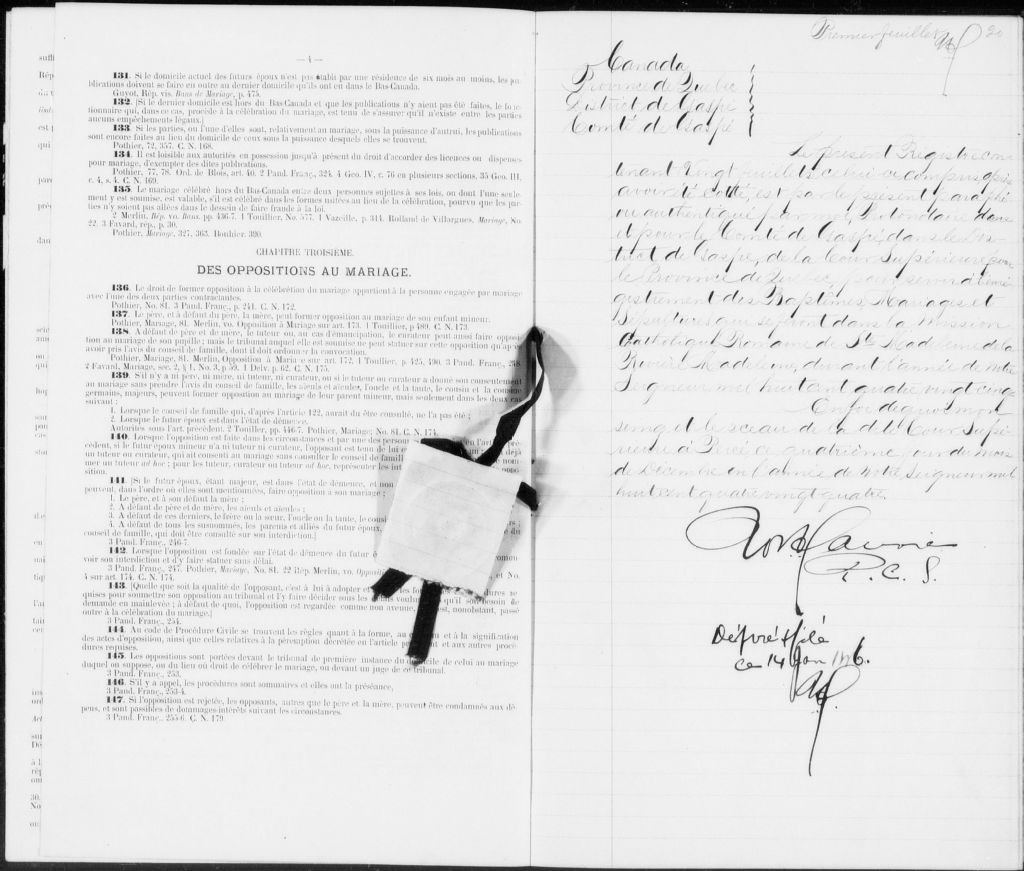 — 4 —
131. Si le domicile actuel des futurs époux n'est pas établi par une résidence de six mois au moins, les pu-
blications doivent se faire en outre au dernier domicile qu'ils ont eu dans le Bas-Canada.
Guyot, Rép. vis. Bans de Mariage, p. 475.
132. [Si le dernier domicile est hors du Bas-Canada et que les publications n'y aient pas été faites, le fonc-
tionnaire qui, dans ce cas, procède à la célébration du mariage, est tenu de s'assurer qu'il n'existe entre les parties
aucuns empêchements légaux.]
133. Si les parties, ou l'une d'elles sont, relativement au mariage, sous la puissance d'autrui, les publications
sont encore faites au lieu du domicile de ceux sous la puissance desquels elles se trouvent.
Pothier, 72, 357. C. N. 168.
134. Il est loisible aux autorités en possession jusqu'à présent du droit d'accorder des licences ou dispenses
pour mariage, d'exempter des dites publications.
Pothier, 77, 78. Ord. de Blois, art. 40. 2 Paud. Franç., 324. 4 Geo. IV, c. 76 en plusieurs sections, 35 Geo. III,
c. 4, s. 4. C. N. 169.
135. Le mariage célébré hors du Bas-Canada entre deux personnes sujettes à ses lois, ou dont l'une seule-
ment y est soumise, est valable, s'il est célébré dans les formes usitées au lieu de la célébration, pourvu que les par-
ties n'y soient pas allées dans le dessein de faire fraude à la loi.
2 Merlin, Rép. vo. Bans, pp. 436-7. 1 Touiller, No. 577. 1 Vazeille, p. 314. Rolland de Villargues, Mariage, No.
22. 3 Favard, rép., p. 30.
Pothier, Mariage, 327, 363. Bouhier. 390.
CHAPITRE TROISIÈME.
DES OPPOSITIONS AU MARIAGE.
136. Le droit de former opposition à la célébration du mariage appartient à la personne engagée par mariage
avec l'une des deux parties contractantes.
Pothier, No. 81. 3 Paud. Franç., p. 241. C. N. 172.
137. Le père, et à défaut du père, la mère, peut former opposition au mariage de son enfant mineur.
Pothier, Mariage, 81. Merlin, vo. Opposition à Mariage sur art. 173. 1 Touillier, p 489. C. N. 173.
138. A défaut de père et de mère, le tuteur ou, au cas d'émancipation, le curateur peut aussi faire opposi-
tion au mariage de son pupille ; mais le tribunal auquel elle est soumise ne peut statuer sur cette opposition qu'après
avoir pris l'avis du conseil de famille, dont il doit ordonner la convocation.
Pothier, Mariage, 81. Merlin, Opposition à Maria e sur art. 172. 1 Touillier, p. 425, 490. 3 Paud. Franç., 248.
2 Favard, Mariage, sec. 2, § 1, No. 3, p 59. 1 Delv. p. 62. C. N. 175.
139. S'il n'y a ni père, ni mère, ni tuteur, ni curateur, ou si le tuteur ou curateur a donné son consentement
au mariage sans prendre l'avis du conseil de famille, les aïeuls et aïeules, l'oncle et la tante, le cousin et la cousine
germains, majeurs, peuvent former opposition au mariage de leur parent mineur, mais seulement dans les deux cas
suivant :
1. Lorsque le conseil de famille qui, d'après l'article 122, aurait du être consulté, ne l'a pas été ;
2. Lorsque le futur époux est dans l'état de démence.
Autorités sous l'art précédent. 2 Touiller, pp. 446-7. Pothier, Mariage; No. 81. C. N. 174.
140. Lorsque l'opposition est faite dans les circonstances et par une des person
cédent, si le futur époux mineur n'a ni tuteur ni curateur, l'opposant est tenu de lui e
un tuteur ou curateur, qui ait consenti au mariage sans consulter le conseil de famill
mer un tuteur ad hoc ; pour les tuteur, curateur ou tuteur ad hoc, représenter les int
141. [Si le futur époux, étant majeur, est dans l'état de démence, et non
peuvent, dans l'ordre où elles sont mentionnées, faire opposition à son mariage ;
1. Le père, et à son défaut la mère ;
2. A défaut de père et de mère, les aïeuls et aïeules ;
3. A défaut de ces derniers, le frère ou la sœur, l'oncle ou la tante, le cousi
4. A défaut de tous les susnommés, les parents et alliés du futur époux,
conseil de famille, qui doit être consulté sur son interdiction.]
3 Paud. Franç., 246-7.
142. Lorsque l'opposition est fondée sur l'état de démence du futur é
voir son interdiction et d'y faire statuer sans délai.
3 Paud. Franç., 247. Pothier, Mariage, No. 81. 22 Rép Merlin, vo. Oppositi
4 sur art. 174. C. N. 174.
143. [Quelle que soit la qualité de l'opposant, c'est à lui à adopter et
quises pour soumettre son opposition au tribunal et l'y faire décider sous les délais voulus qu'il soit besoin de
demande en mainlevée ; à défaut de quoi, l'opposition est regardée comme non avenue, est, nonobstant, passé
outre à la célébration du mariage.]
3 Paud. Franç., 254.
144. Au code de Procédure Civile se trouvent les règles quant à la forme, au et à la signification
des actes d'opposition, ainsi que celles relatives à la péremption décrétée en l'article et aux autres procé-
dures requises.
145. Les oppositions sont portées devant le tribunal de première instance du domicile de celui au mariage
duquel on suppose, ou du lieu où doit de célébrer le mariage, ou devant un juge de ce tribunal.
3 Paud. Franç., 253.
146. S'il y a appel, les procédures sont sommaires et elles ont la préséance,
3 Paud. Franç., 253-4.
147. Si l'opposition est rejetée, les opposants, autres que le père et la mère, peuvent être condamnés aux dé-
pens, et sont passibles de dommages-intérêts suivant les circonstances.
3 Paud. Franç., 255-6. C. N. 179.
Premier feuillet 20
Canada
Province de Québec
District de Gaspé
Comté de Gaspé
Le présent Registre con
tenant vingt feuillets celui-ci compris après
avoir été coté, est par le présent paraphé
ou authentiqué par moi, Protonotaire dans
et pour le Comté de Gaspé, dans le Dis-
trict de Gaspé, de la Cour Supérieure pour
la Province de Québec, pour servir à l'enré-
gistrement des Baptêmes, Mariages et
Sépultures qui se feront dans la Mission
Catholique Romaine de Ste Madeleine de la
Rivière Madeleine, durant l'année de Notre
Seigneur mil huit cent quatre vingt cinq.
En foi de quoi mon
seing et le sceau de la dite Cour Supé-
rieure à Percé ce quatrième jour du mois
de Décembre en l'année de Notre Seigneur mil
huit cent quatre vingt quatre.
P. C. S.
Déposé & filé
ce 14 Jan